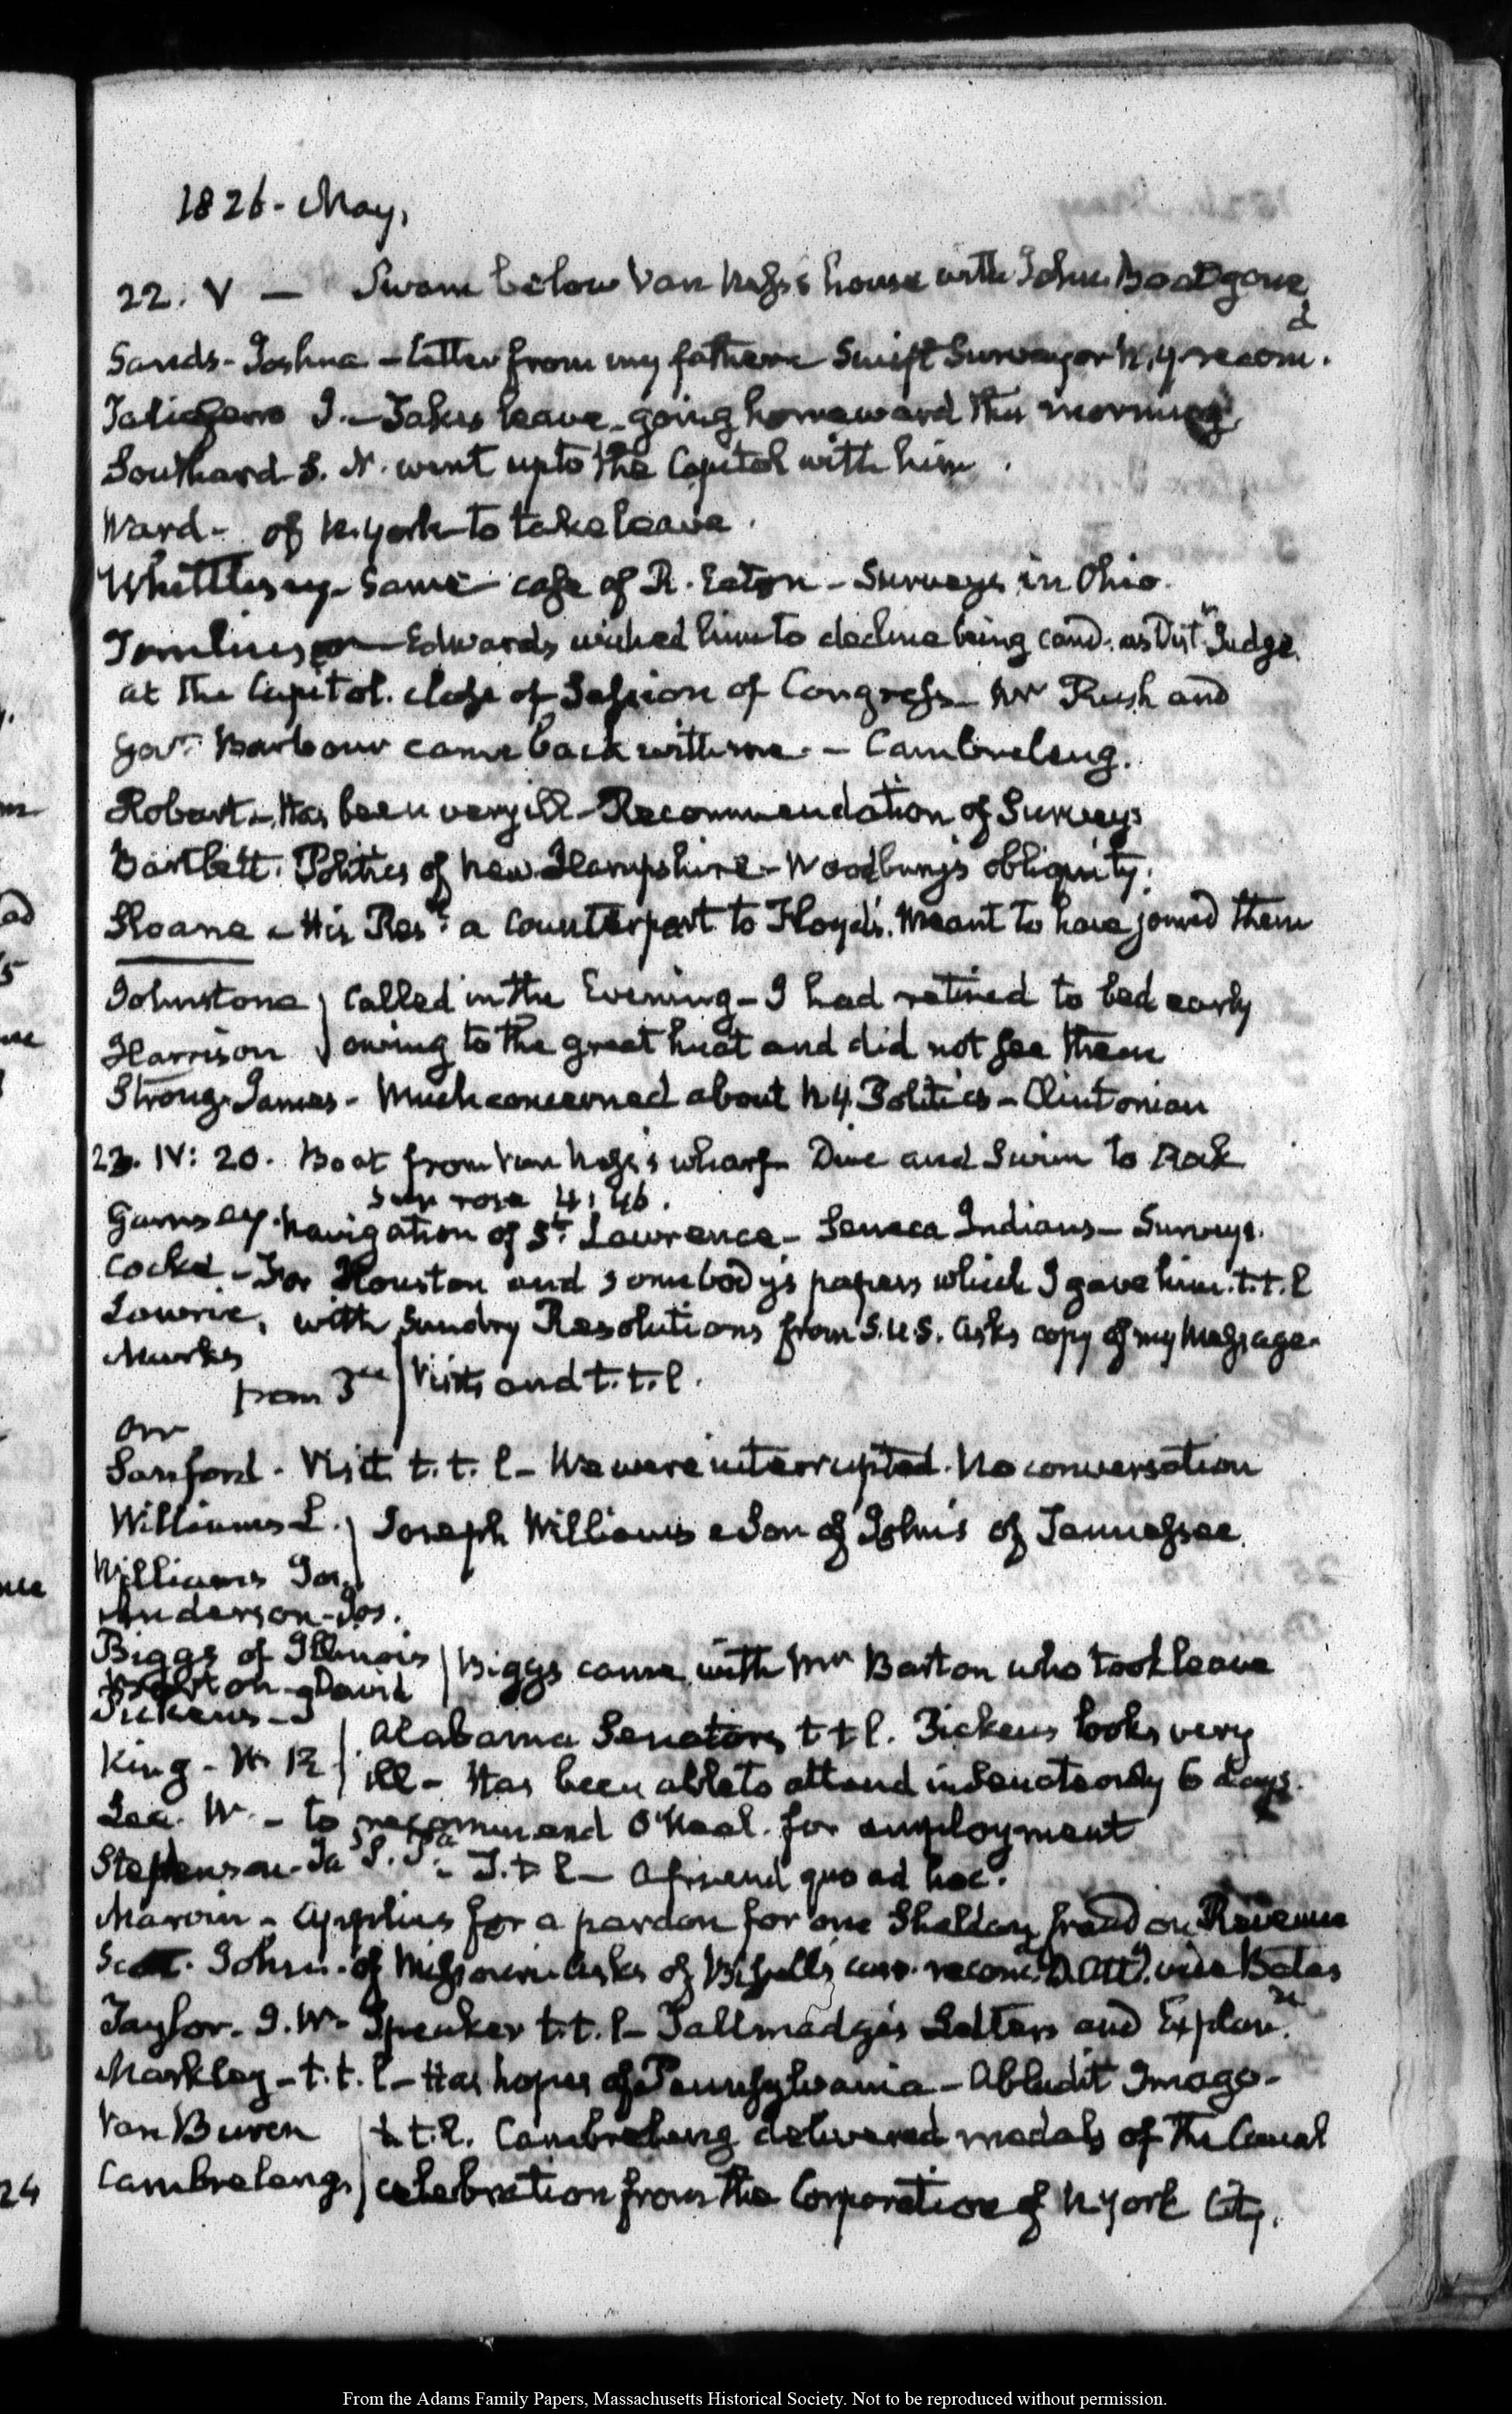 1826- May,
22. V — Swam below Van Ness's house with John Boat gone
Sands- Joshua – letter from my father Swift Surveyor N.Y recom.d
Taliaferro J. – Takes leave – going homeward this morning
Southard S. N. went up to the Capitol with him.
Ward- of N. York to take leave.
Whittlesey – Same case of R. Eaton – Surveys in Ohio.
Tomlinson – Edwards wished him to decline being cand. as Dist Judge
at the Capitol. close of Session of Congress – Mr Rush and
Govr. Barbour came back with me. – Cambreleng.
Robert – Has been very ill – Recommendation of Surveys
Bartlett. Politics of New Hampshire – Woodbury's obliquity.
Sloane – His Resn. a Counterpart to Floyd's. Meant to have joined them
Johnstone } Called in the Evening – I had retired to bed early
Harrison } owing to the great heat and did not see them
Strong. James – Much concerned about N Y. Politics – Clintonian
23. IV: 20. Boat from Van Ness's wharf. Dive and Swim to Rock
Sun rose 4:46.
Garnsey. Navigation of St. Lawrence – Seneca Indians – Surveys.
Cocke – For Houston and somebody's papers which I gave him. t.t.l
Lowrie, with Sundry Resolutions from S.U.S. asks copy of my Message
Marks
from } Visits and t.t.l.
Orr
Sanford. Visit t. t. l – We were interrupted. No conversation
Williams L. } Joseph Williams a Son of John's of Tennessee.
Williams Jos.
Anderson – Jos.
Biggs of Illinois } Biggs came with Mr Barton who took leave
Barton – David
Pickens – I } Alabama Senators t t l. Pickens looks very
King – W R } ill – Has been able to attend in Senate only 6 days.
Lee. W. – to recommend O'Neal. for employment
Stephenson – Jas S. Pa. – T. t l – a friend quoad hoc.
Marvin – applies for a pardon for one Sheldon, fraud on Revenue
Scott. John. of Missouri asks of Bissell's case. recomd. D. Atty. vice Bates
Taylor. J. W. Speaker t.t.l – Tallmadge's Letters and Explann.
Markley – t. t. l – Has hopes of Pennsylvania – Abludit Imago –
Van Buren } t. t. l. Cambreleng delivered medals of the Canal
Cambreleng } celebration from the Corporation of N York City.
From the Adams Family Papers, Massachusetts Historical Society. Not to be reproduced without permission.